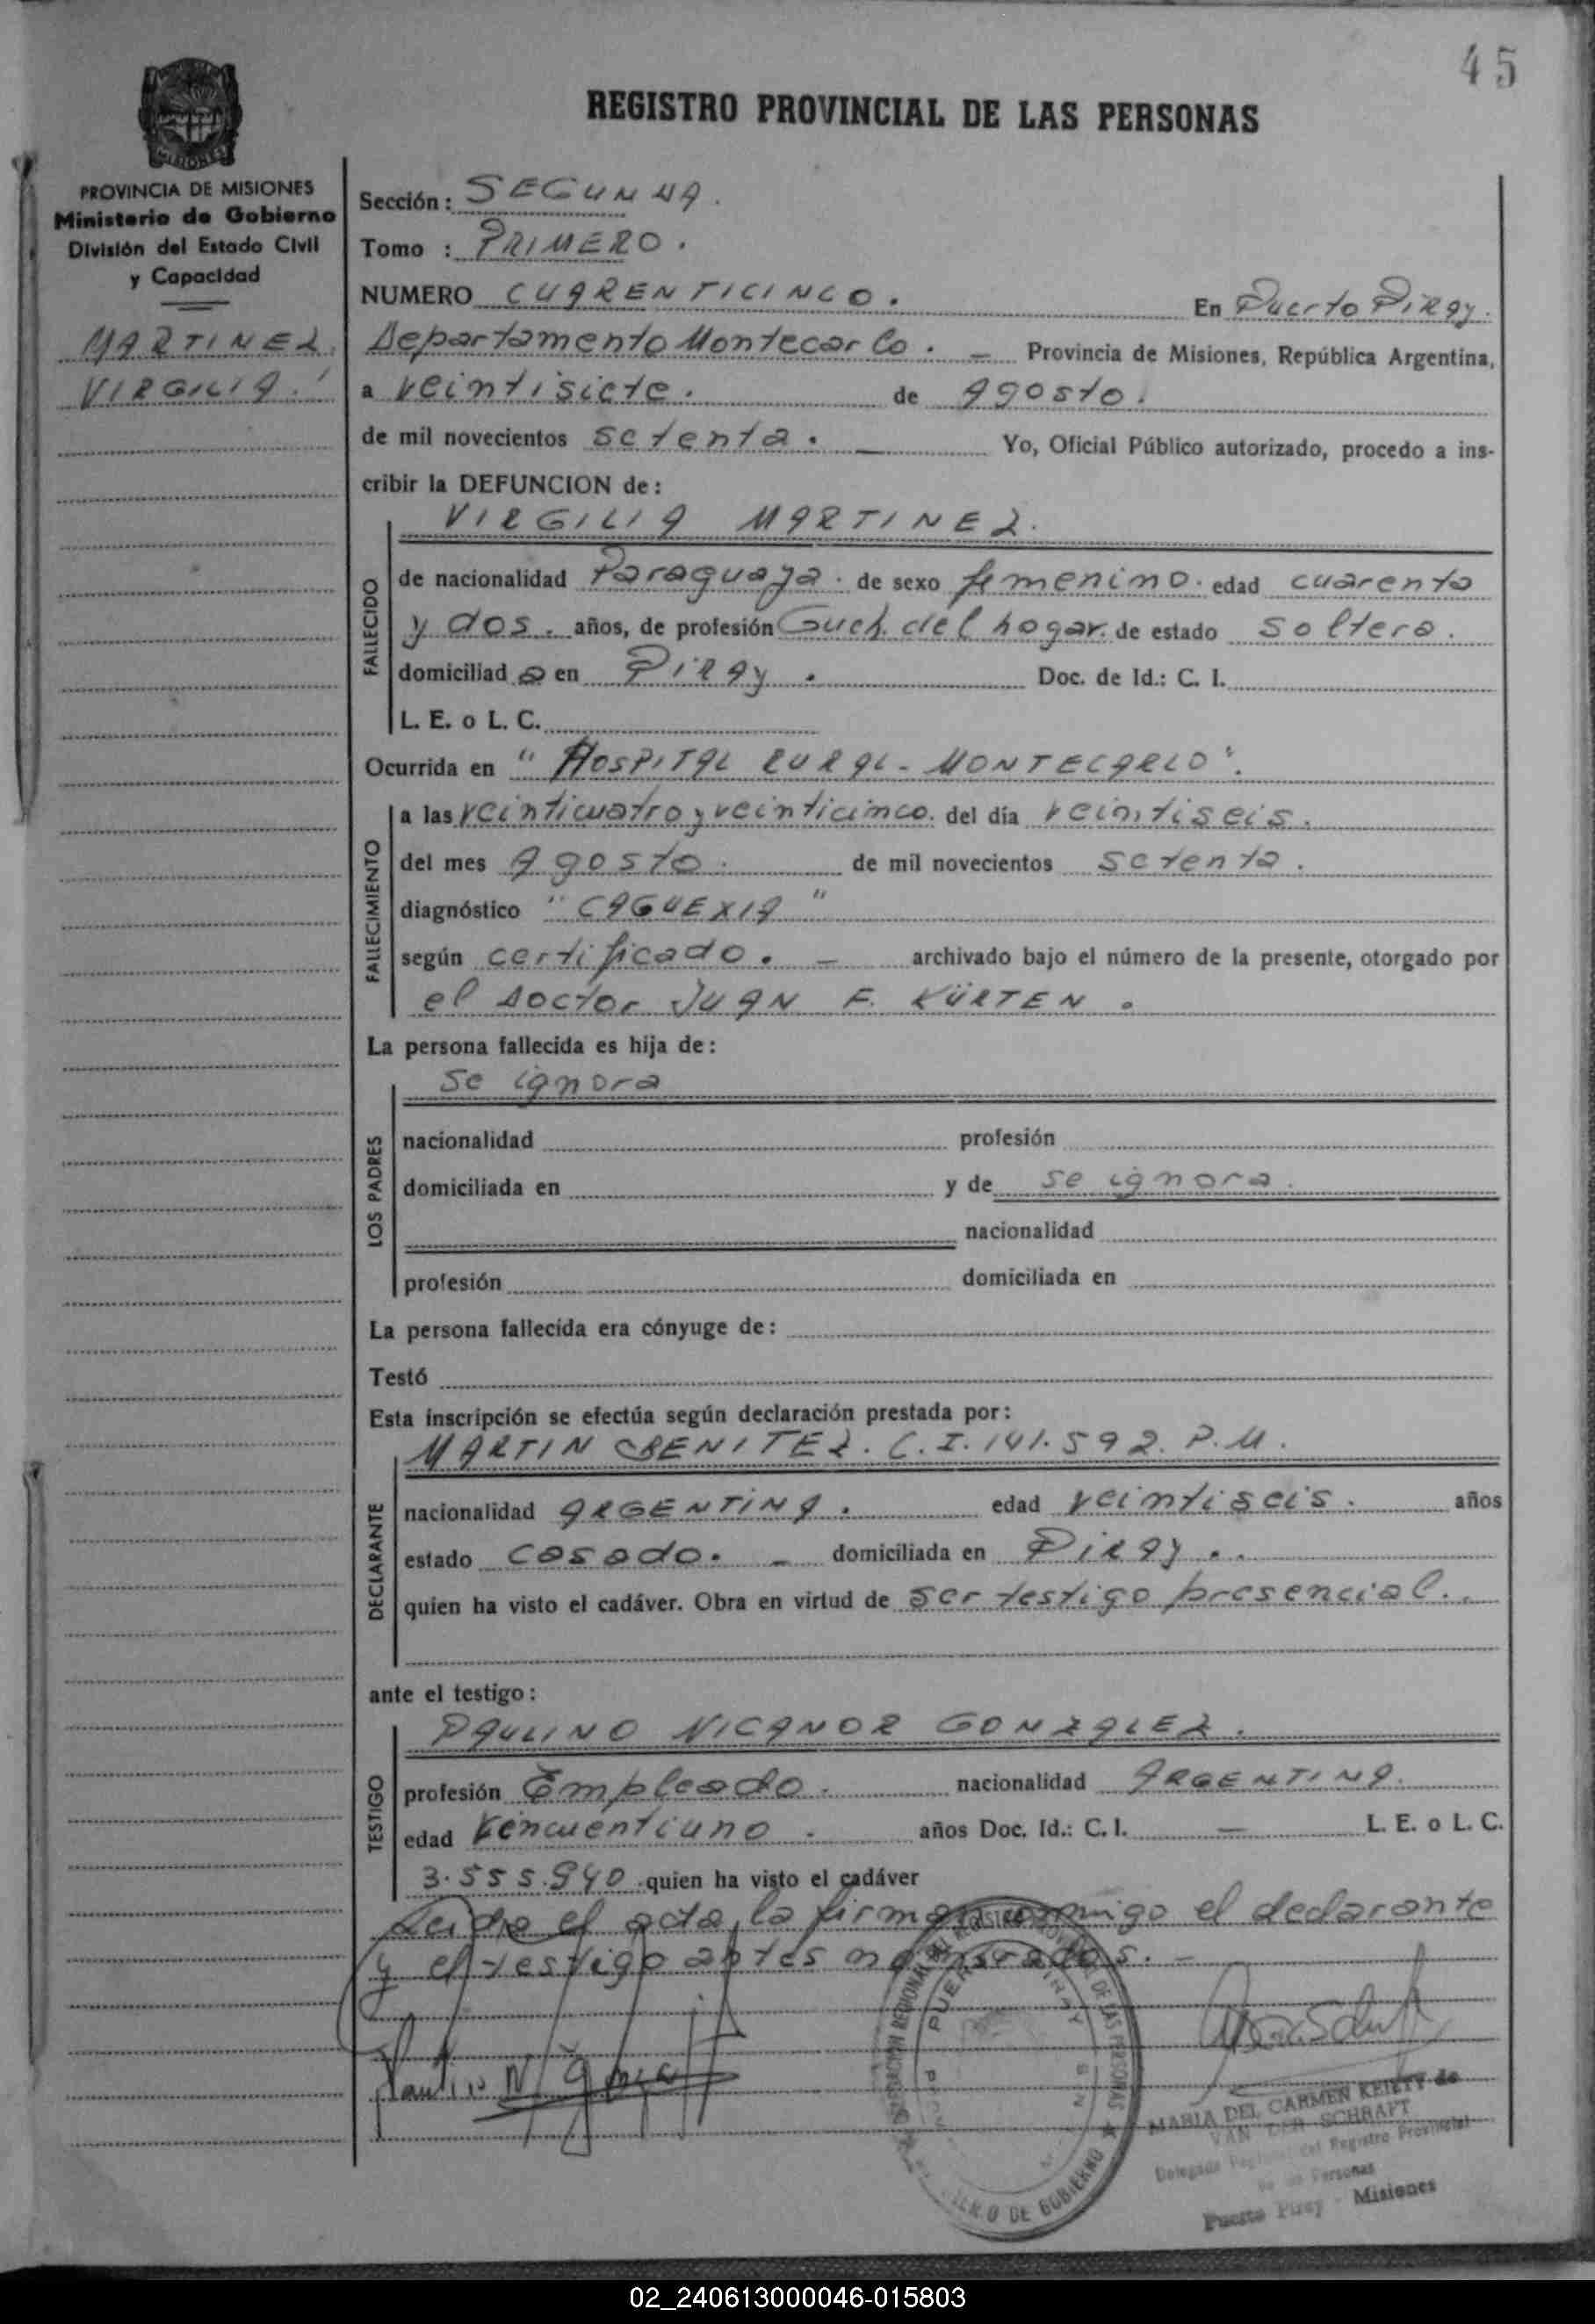 45
REGISTRO PROVINCIAL DE LAS PERSONAS
MISIONES
PROVINCIA DE MISIONES
Ministerio de Gobierno
División del Estado Civil
y Capacidad
MARTINEZ,
VIRGILIA.
Sección: SEGUNDA.
Tomo : PRIMERO.
NUMERO CUARENTICINCO. En Puerto Piray.
Departamento Montecarlo. — Provincia de Misiones, República Argentina,
a veintisiete. de Agosto.
de mil novecientos setenta. — Yo, Oficial Público autorizado, procedo a ins-
cribir la DEFUNCION de:
VIRGILIA MARTINEZ.
FALLECIDO
de nacionalidad Paraguaya. de sexo femenino. edad cuarenta
y dos. años, de profesión Queh. del hogar. de estado soltera.
domiciliad a en Piray. Doc. de Id.: C. I.
L. E. o L. C.
Ocurrida en "HOSPITAL RURAL - MONTECARLO".
FALLECIMIENTO
a las veinticuatro y veinticinco. del día veintiseis.
del mes Agosto. de mil novecientos setenta.
diagnóstico "CAQUEXIA"
según certificado. — archivado bajo el número de la presente, otorgado por
el Doctor JUAN F. KÜRTEN.
La persona fallecida es hija de:
Se ignora
LOS PADRES
nacionalidad profesión
domiciliada en y de se ignora.
nacionalidad
profesión domiciliada en
La persona fallecida era cónyuge de:
Testó
Esta inscripción se efectúa según declaración prestada por:
MARTIN BENITEZ. C.I. 141.592. P.M.
DECLARANTE
nacionalidad ARGENTINA. edad veintiseis. años
estado casado. — domiciliada en Piray.
quien ha visto el cadáver. Obra en virtud de ser testigo presencial.
ante el testigo:
TESTIGO
PAULINO NICANOR GONZALEZ.
profesión Empleado. nacionalidad ARGENTINA.
edad cincuentiuno. años Doc. Id.: C. I. — L. E. o L. C.
3.555.940 quien ha visto el cadáver
Leida el acta, la firman conmigo el declarante
y el testigo antes nombrados. —
DE LAS PERSONAS
DE GOBIERNO
MARIA DEL CARMEN de
VAN DER SCHRAFT
Registro Provincial
Personas
Puerto Piray - Misiones
02_240613000046-015803